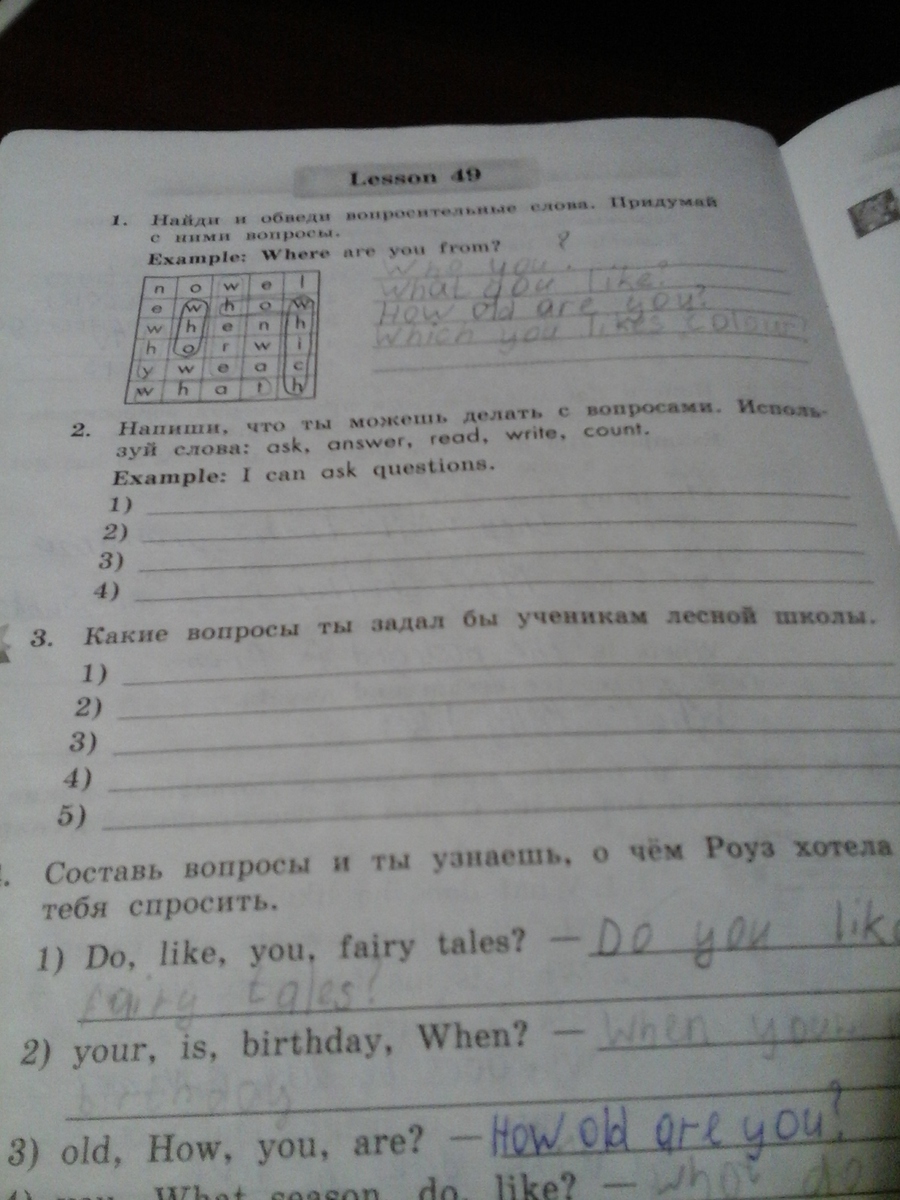 Lesson 49
1. Найди и обведи вопросительные слова. Придумай
с ними вопросы.
Example: Where are you from? ?
Who you.
n o w e l
What you like?
e w h o w
How old are you?
w h e n h
Which you likes colour?
h o r w i
y w e a c
w h a t h
2. Напиши, что ты можешь делать с вопросами. Исполь-
зуй слова: ask, answer, read, write, count.
Example: I can ask questions.
1)
2)
3)
4)
3. Какие вопросы ты задал бы ученикам лесной школы.
1)
2)
3)
4)
5)
Составь вопросы и ты узнаешь, о чём Роуз хотела
тебя спросить.
1) Do, like, you, fairy tales? — Do you like
fairy tales?
2) your, is, birthday, When? — When your
birthday
3) old, How, you, are? — How old are you?
you, What season, do, like? — do